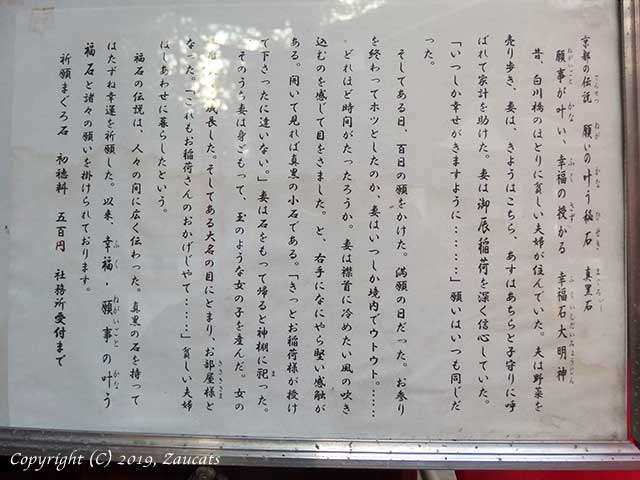 京都の伝説　願いの叶う秘石　真黒石
願事が叶い、幸福の授かる　幸福石大明神
昔、白川橋のほとりに貧しい夫婦が住んでいた。夫は野菜を
売り歩き、妻は、きょうはこちら、あすはあちらと子守りに呼
ばれて家計を助けた。妻は御辰稲荷を深く信心していた。
「いつしか幸せがきますように‥‥‥」願いはいつも同じだ
った。
そしてある日、百日の願をかけた。満願の日だった。お参り
を終わってホッとしたのか、妻はいつしか境内でウトウト。‥‥‥
どれほど時間がたったろうか。妻は襟首に冷めたい風の吹き
込むのを感じて目をさました。と、右手になにやら堅い感触が
ある。開いて見れば真黒の小石である。「きっとお稲荷様が授け
て下さったに違いない。」妻は石をもって帰ると神棚に祀った。
そのうち妻は身ごもって、玉のような女の子を産んだ。女の
成長した。そしてある大名の目にとまり、お部屋様と
なった。「これもお稲荷さんのおかげじゃて‥‥‥」貧しい夫婦
はしあわせに暮らしたという。
福石の伝説は、人々の間に広く伝わった。真黒の石を持って
はたずね幸運を祈願した。以来、幸福・願事の叶う
福石と諸々の願いを掛けられております。
祈願まぐろ石　初穂料　五百円　社務所受付まで
Copyright (C) 2019, Zaucats